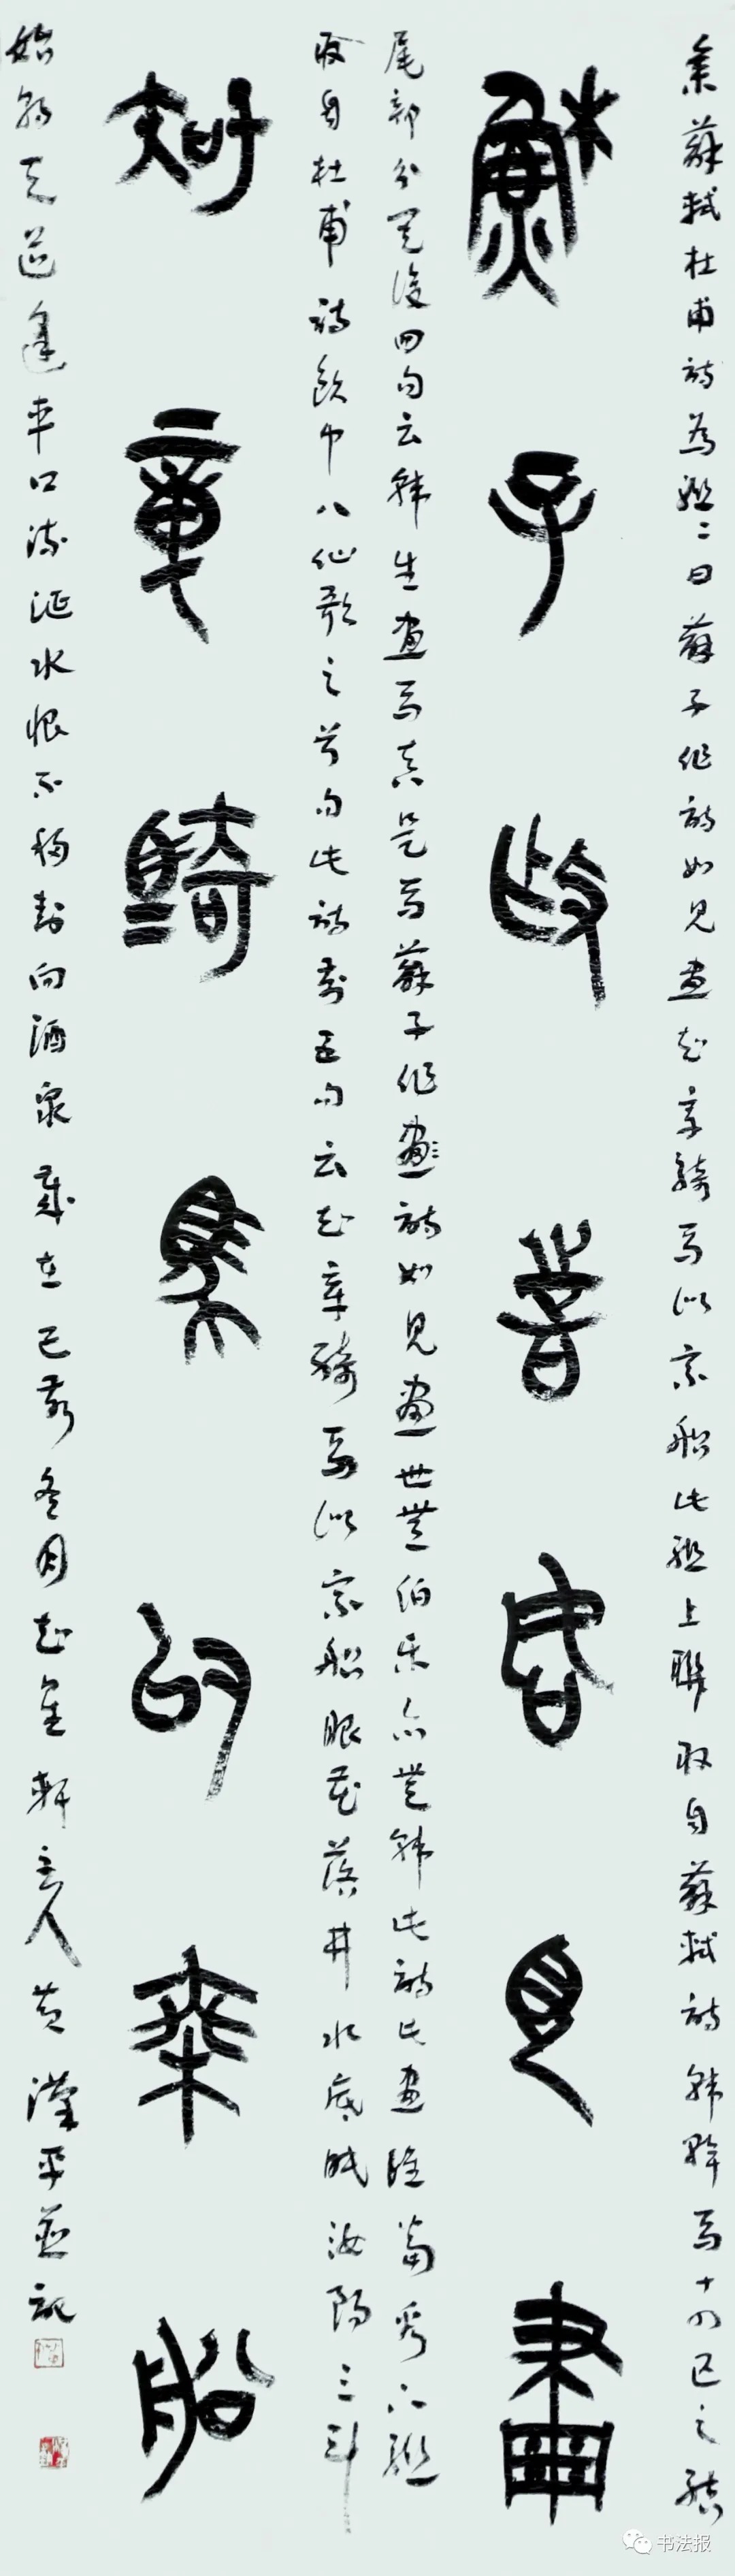 集蘇軾杜甫詩為聯二曰蘇子作詩如見畫知章騎馬似乘船此聯上聯取自蘇軾詩韓幹馬十四匹之結
蘇子作詩如見畫
尾部分最後四句云韓生畫馬真是馬蘇子作畫詩如見畫世無伯樂亦無韓此詩此畫誰當看下聯
取自杜甫詩飲中八仙歌之首句此詩前五句云知章騎馬似乘船眼花落井水底眠汝陽三斗
知章騎馬似乘船
始朝天道逢車口流涎水恨不移封向酒泉歲在己亥冬月軒主人黃漢平並記
书法报